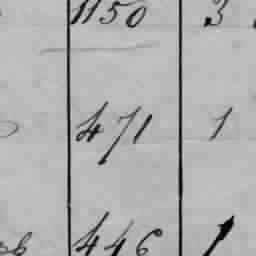 1150 3
471 1
446 1